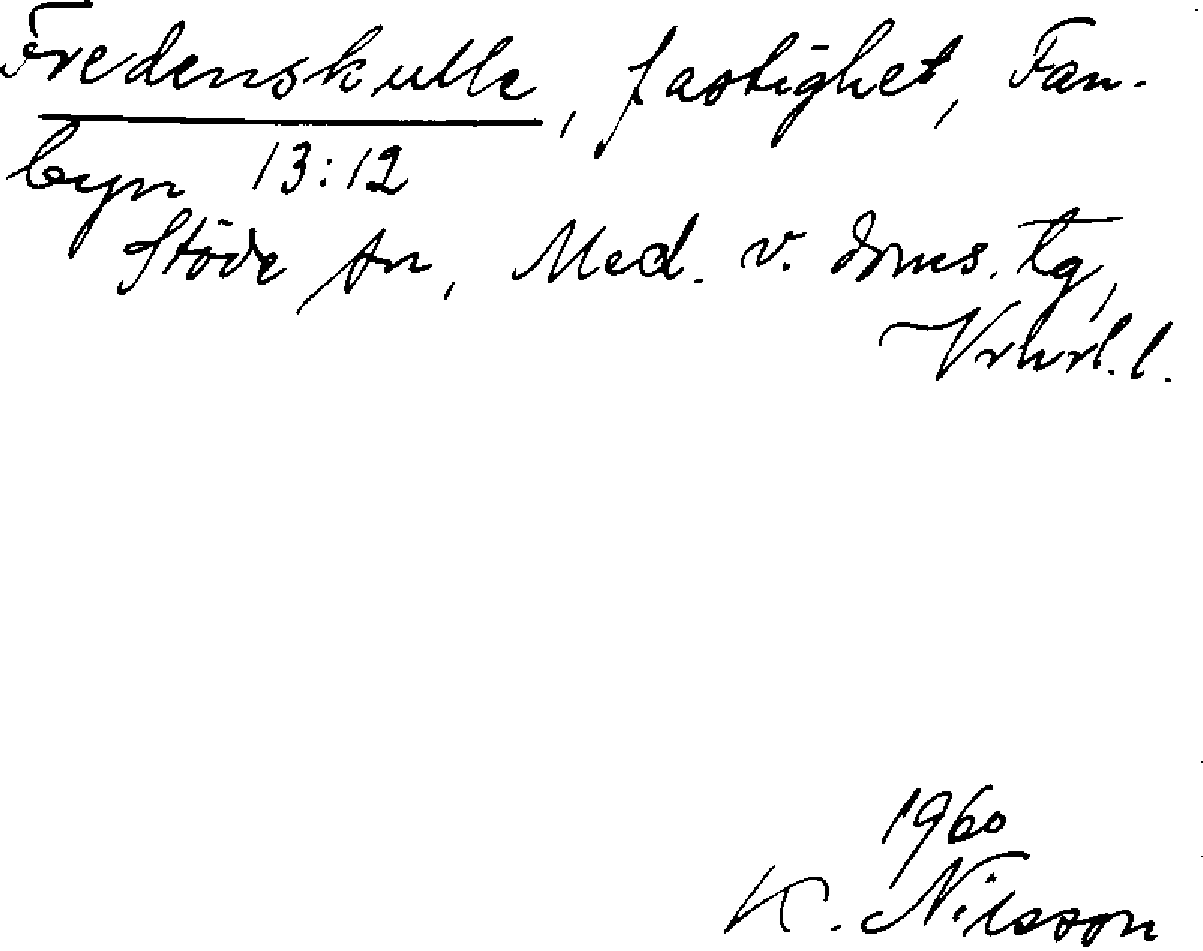 Fredenskulle, fastighet, Fan-
byn 13:12
Stöde sn, Med. v. doms. tg,
Vrnrl. l.
1960
K. Nilsson